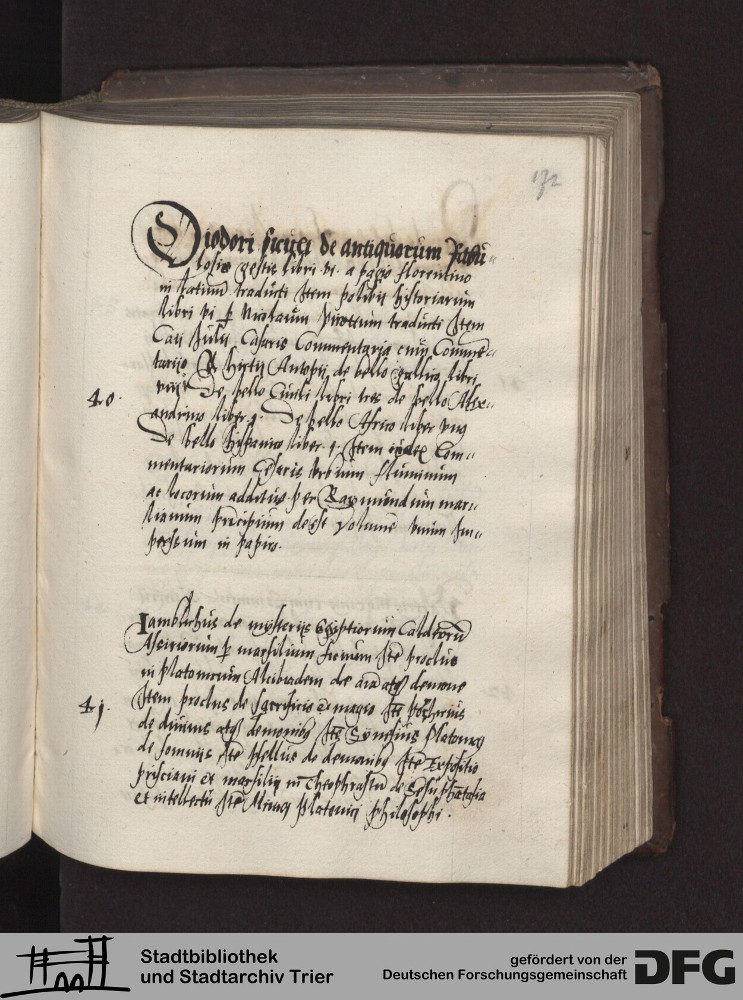 172
Diodori siculi de antiquorum fabu=
losis gestis libri vi. a pogio florentino
in latinum traducti Item polibij historiarum
libri vi p Nicholaum perottum traducti Item
Caij Julij Cæsaris Commentaria cum Comme=
tarijs A. hirtij de bello gallico libri
viij De bello Civili libri tres de bello Alex=
40.
andrino liber .j. De bello Africo liber
De bello hispanico liber .j. Item index Com=
mentariorum Cesaris urbium fluminum
ac locorum additus per Raymundum mar=
lianum deest volume unum Im=
pressum in papiro.
Iamblichus de mysterijs Egiptiorum Caldeorū
Assiriorum p marsilium ficinum Itē proclus
in platonicum Alcibiadem de aīa atq3 demone
41.
Item proclus de sacrificio et magia Itē porphirius
de divinis atq3 demonib9 Itē Synesius Platonic9
de somnijs Itē psellus de demonib9 Itē Expositio
prisciani et marsilij in Theophrastū de Sēsu phātasia
et intellectu Itē Alcinoj Platonici philosophi .
Stadtbibliothek
und Stadtarchiv Trier
gefördert von der
Deutschen Forschungsgemeinschaft
DFG